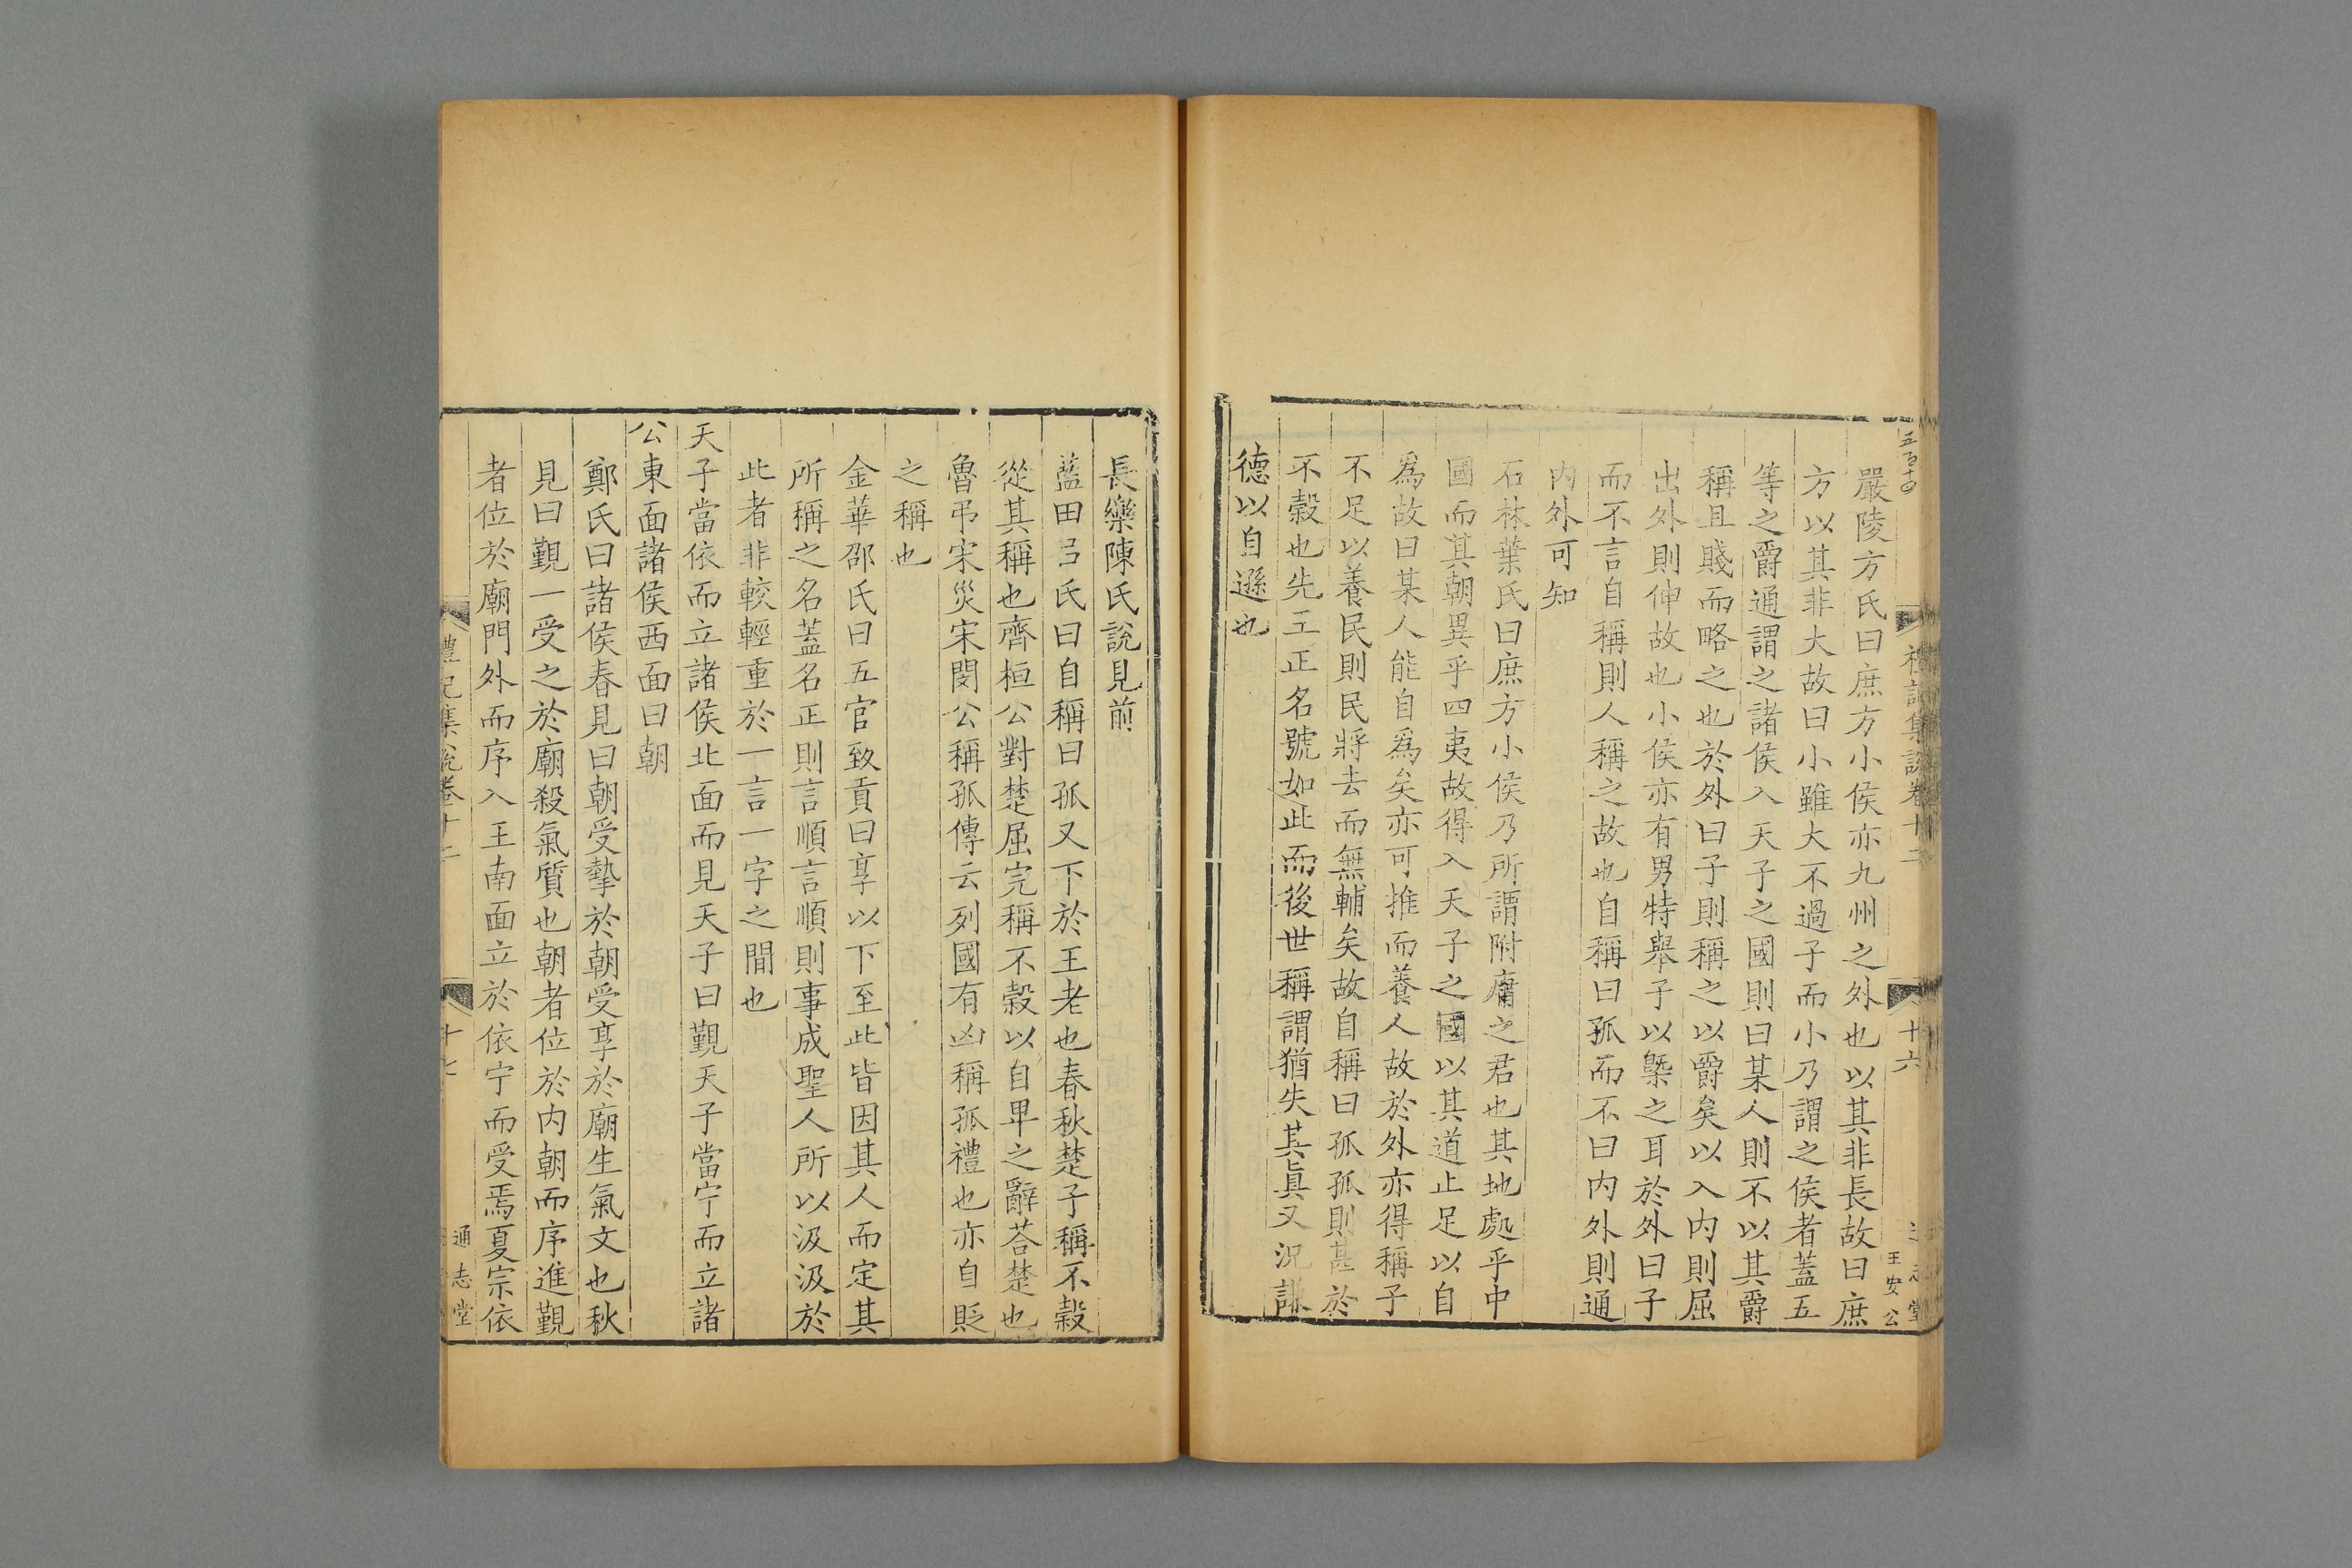 嚴陵方氏曰庶方小侯亦九州之外也以其非長故曰庶
方以其非大故曰小雖大不過子而小乃謂之侯者蓋五
等之爵通謂之諸侯入天子之國則曰某人則不以其爵
稱且賤而略之也於外曰子則稱之以爵矣以入内則屈
出外則伸故也小侯亦有男特舉子以槩之耳於外曰子
而不言自稱則人稱之故也自稱曰孤而不曰内外則通
内外可知
石林葉氏曰庶方小侯乃所謂附庸之君也其地處乎中
國而其朝異乎四夷故得入天子之國以其道止足以自
爲故曰某人能自爲矣亦可推而養人故於外亦得稱子
不足以養民則民將去而無輔矣故自稱曰孤孤則甚於
不穀也先王正名號如此而後世稱謂猶失其眞又況謙
德以自遜也
五百十四
禮記集說卷十二
十六
志堂
王安公
長樂陳氏說見前
藍田呂氏曰自稱曰孤又下於王老也春秋楚子稱不穀
從其稱也齊桓公對楚屈完稱不穀以自卑之辭荅楚也
魯弔宋災宋閔公稱孤傳云列國有凶稱孤禮也亦自貶
之稱也
金華邵氏曰五官致貢曰享以下至此皆因其人而定其
所稱之名蓋名正則言順言順則事成聖人所以汲汲於
此者非較輕重於一言一字之間也
天子當依而立諸侯北面而見天子曰覲天子當宁而立諸
公東面諸侯西面曰朝
鄭氏曰諸侯春見曰朝受摯於朝受享於廟生氣文也秋
見曰覲一受之於廟殺氣質也朝者位於内朝而序進覲
者位於廟門外而序入王南面立於依宁而受焉夏宗依
禮記集說卷十二
十七
通志堂